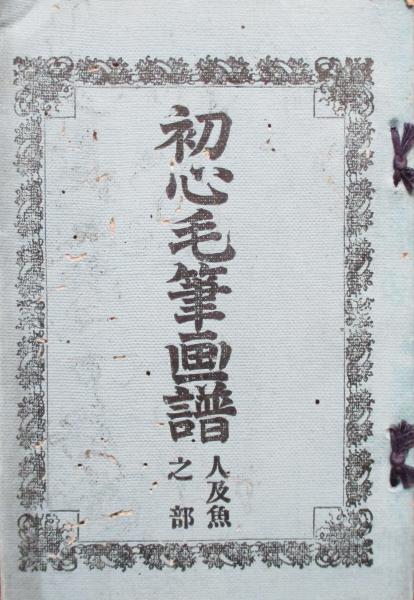 初心毛筆画譜
人及魚
之部